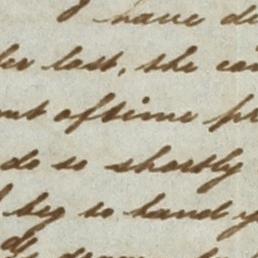 have de
last, the
oftime pr
do so shortly
beg to hand y